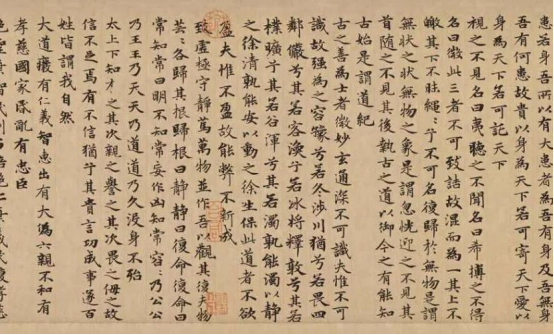 患若身吾所以有大患者為吾有身及吾無身
吾有何患故貴以身為天下若可寄天下愛以
身為天下若可託天下
視之不見名曰夷聽之不聞名曰希搏之不得
名曰微此三者不可致詰故混而為一其上不
皦其下不昧繩〻兮不可名復歸於無物是謂
無狀之狀無物之象是謂忽恍迎之不見其
首隨之不見其後執古之道以御今之有能知
古始是謂道紀
古之善為士者微妙玄通深不可識夫惟不可
識故強為之容豫兮若冬涉川猶兮若畏四
鄰儼兮其若客渙兮若冰將釋敦兮其若
樸曠兮其若谷渾兮其若濁孰能濁以靜
之徐清孰能安以動之徐生保此道者不欲
盈夫惟不盈故能弊不新成
致虛極守靜篤萬物並作吾以觀其復夫物
芸〻各歸其根歸根曰靜靜曰復命復命曰
常知常曰明不知常妄作凶知常容〻乃公公
乃王王乃天天乃道道乃久没身不殆
太上下知有之其次親之譽之其次畏之侮之故
信不足焉有不信猶兮其貴言功成事遂百
姓皆謂我自然
大道廢有仁義智惠出有大偽六親不和有
孝慈國家昏亂有忠臣